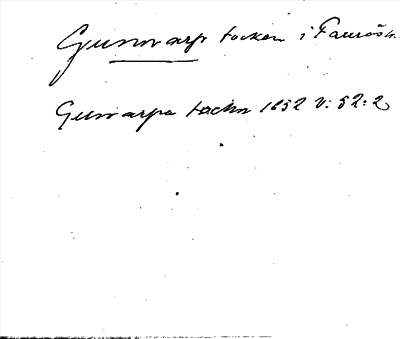 Gunnarp socken i Faurås h.
Gunnarps sockn 1652 V: 52: 2